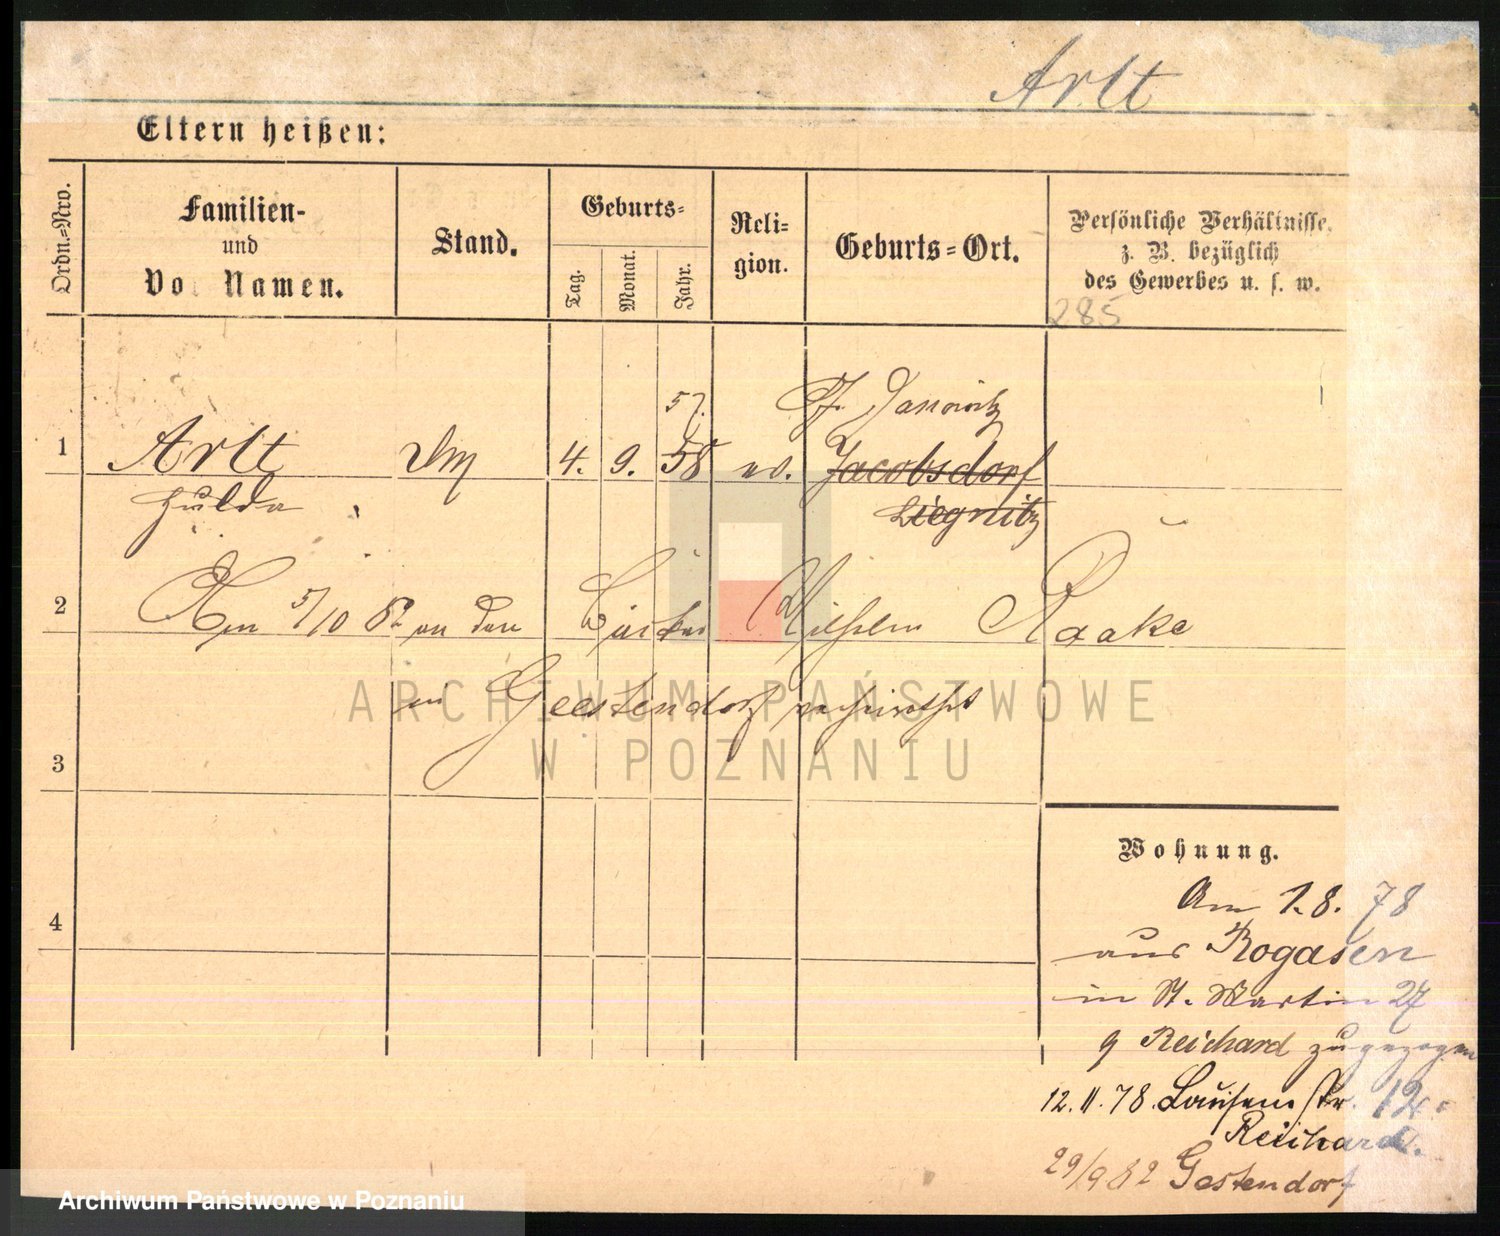 Arlt
Eltern heißen:
Ordn.=Nro.
Familien-
und
Vor Namen.
Stand.
Geburts=
Tag.
Monat.
Jahr.
Reli=
gion.
Geburts=Ort.
Persönliche Verhältnisse,
z. B. bezüglich
des Gewerbes u. s. w.
285
57.
Janowitz
1 Arlt 4. 9. 58 ev. Jacobsdorf
Hulda Liegnitz
2 Am 5/10 82 an den Bäcker Wilhelm Raake
in Geestendorf verheirathet
ARCHIWUM PAŃSTWOWE
W POZNANIU
3
Wohnung.
4
Am 1.8.78
aus Rogasen
in St. Martin 27
Reichard zugezogen
12.11.78. Louisenstr. 12.
Reichard.
29/9 82 Gestendorf
Archiwum Państwowe w Poznaniu